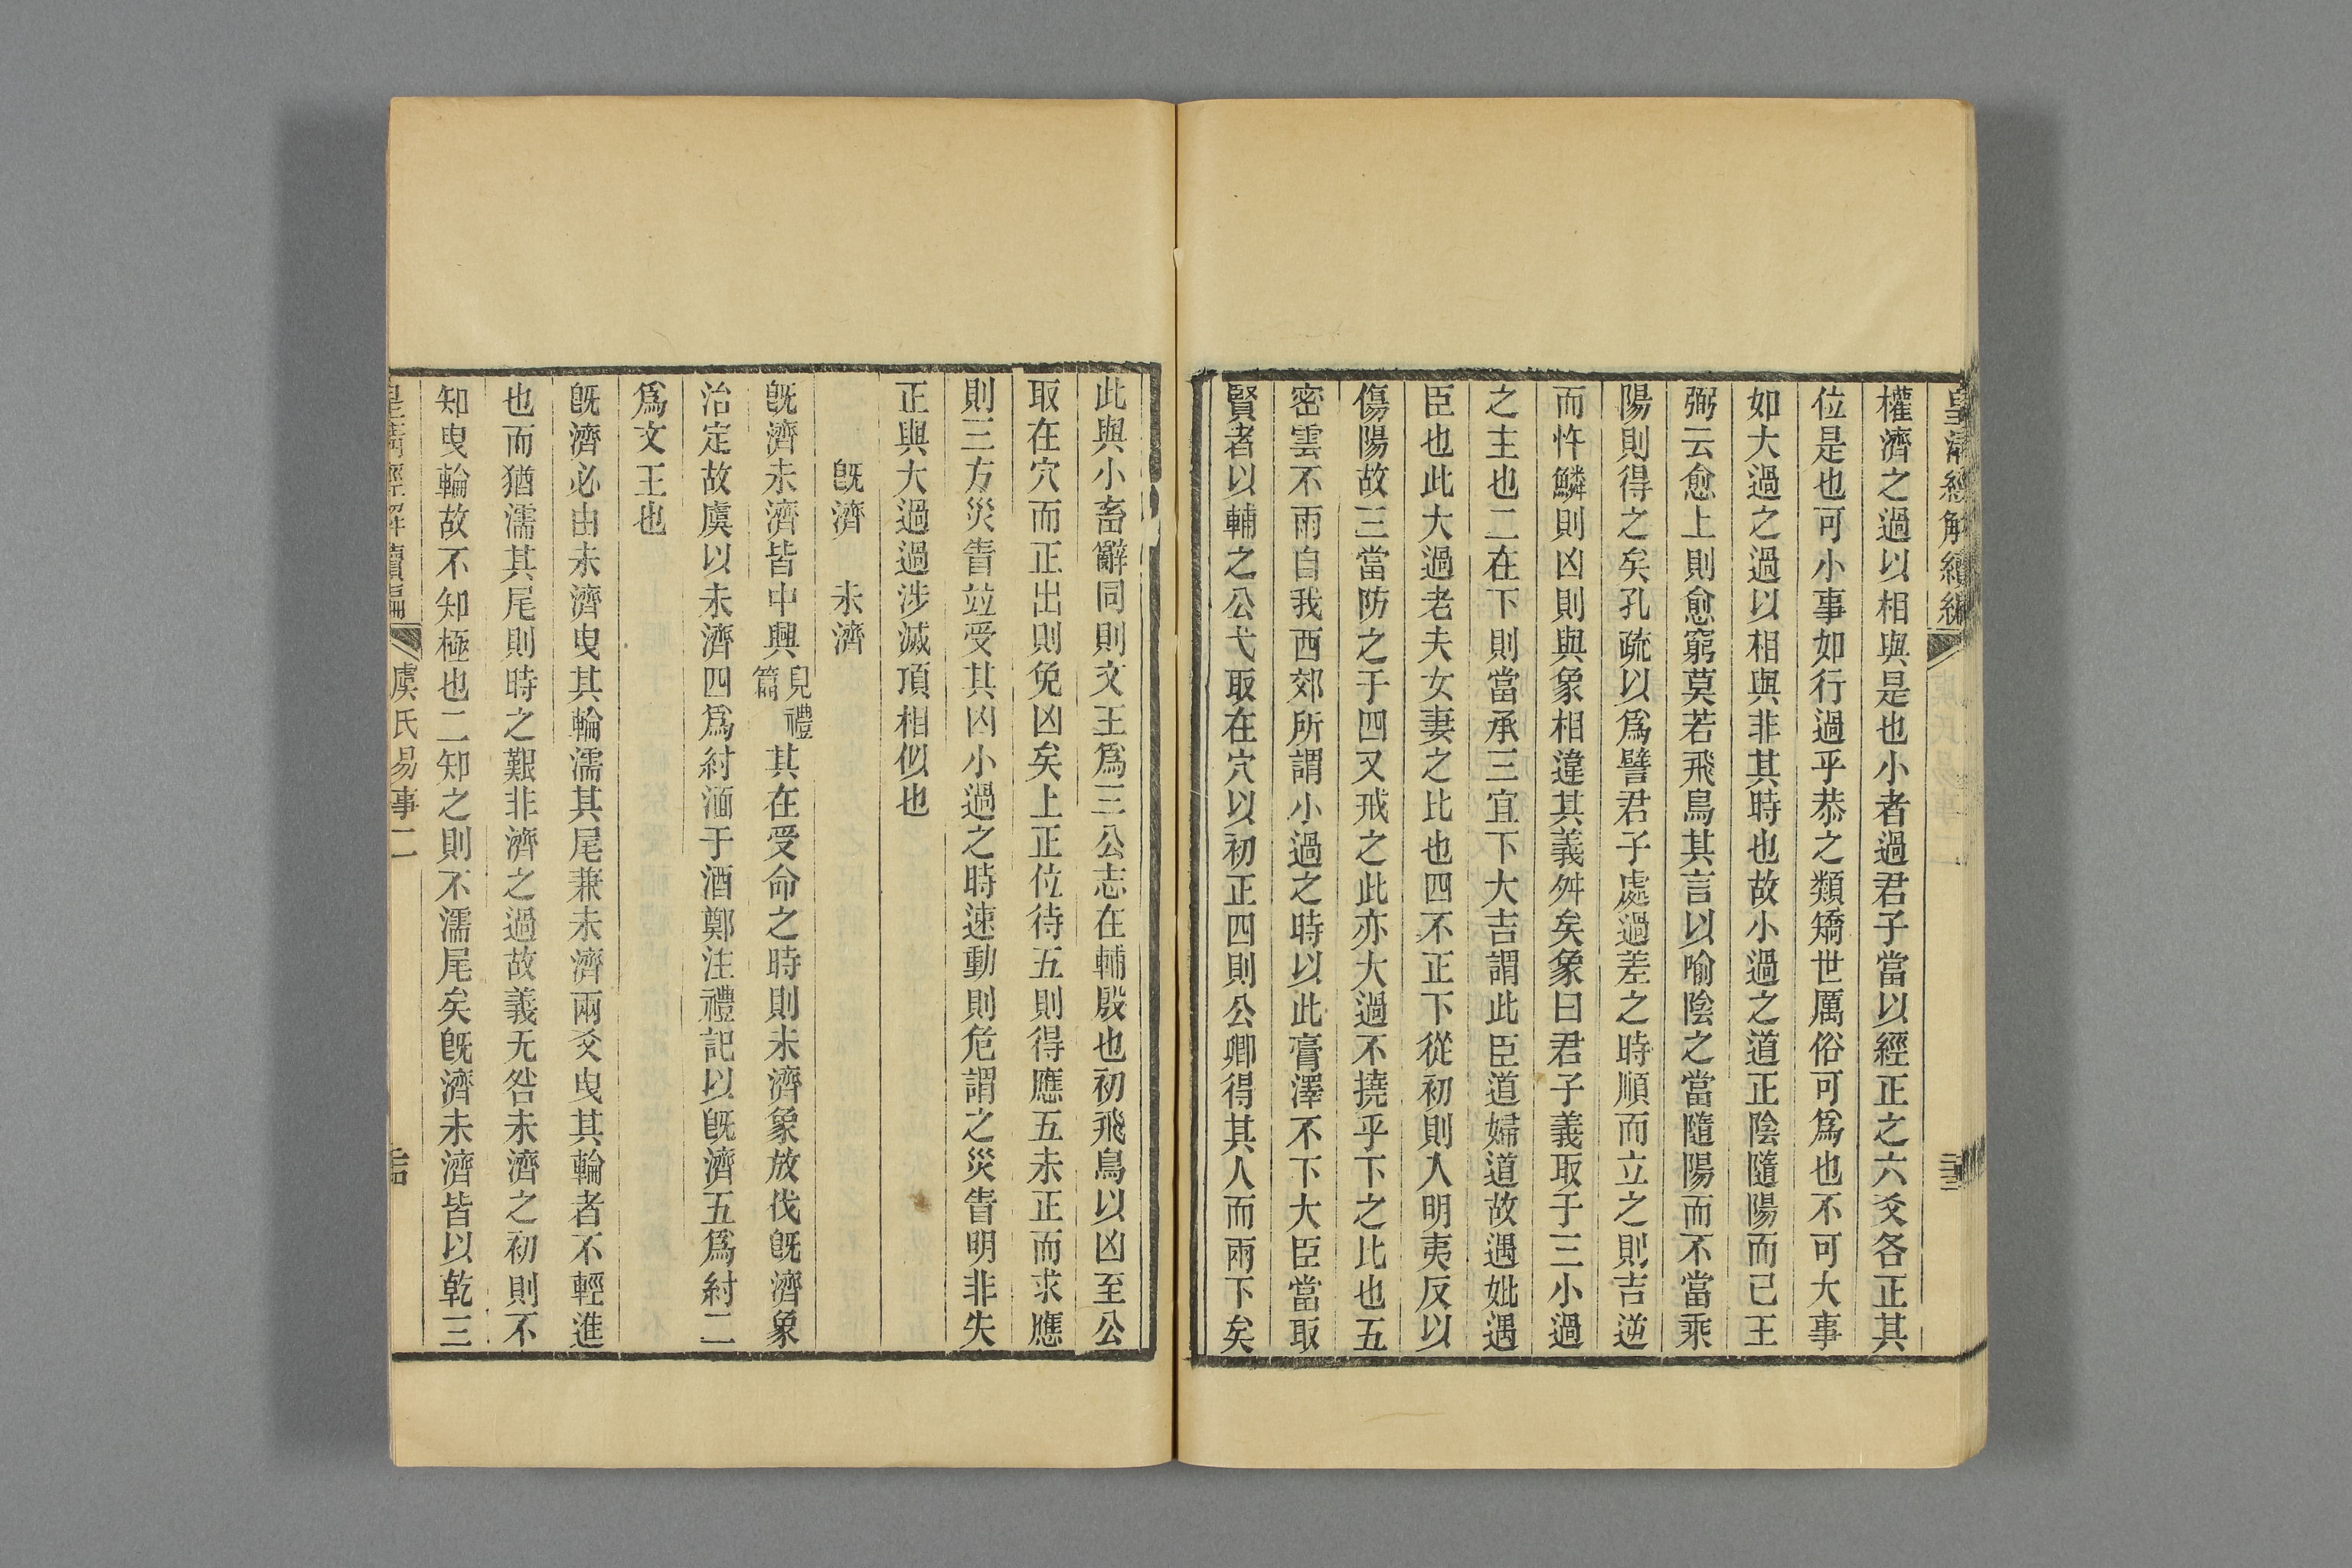 皇清經解續編
權濟之過以相與是也小者過君子當以經正之六爻各正其
位是也可小事如行過乎恭之類矯世厲俗可爲也不可大事
如大過之過以相與非其時也故小過之道正陰隨陽而已王
弼云愈上則愈窮莫若飛鳥其言以喻陰之當隨陽而不當乘
陽則得之矣孔疏以爲譬君子處過差之時順而立之則吉逆
而忤鱗則凶則與象相違其義舛矣象曰君子義取于三小過
之主也二在下則當承三宜下大吉謂此臣道婦道故遇妣遇
臣也此大過老夫女妻之比也四不正下從初則入明夷反以
傷陽故三當防之于四又戒之此亦大過不撓乎下之比也五
密雲不雨自我西郊所謂小過之時以此膏澤不下大臣當取
賢者以輔之公弋取在穴以初正四則公卿得其人而雨下矣
此與小畜辭同則文王爲三公志在輔殷也初飛鳥以凶至公
取在穴而正出則免凶矣上正位待五則得應五未正而求應
則三方災眚竝受其凶小過之時速動則危謂之災眚明非失
正與大過過涉滅頂相似也
旣濟　未濟
旣濟未濟皆中興皃禮篇其在受命之時則未濟象放伐旣濟象
治定故虞以未濟四爲紂湎于酒鄭注禮記以旣濟五爲紂二
爲文王也
旣濟必由未濟曳其輪濡其尾兼未濟兩爻曳其輪者不輕進
也而猶濡其尾則時之艱非濟之過故義无咎未濟之初則不
知曳輪故不知極也二知之則不濡尾矣旣濟未濟皆以乾三
皇清經解續編　虞氏易事二